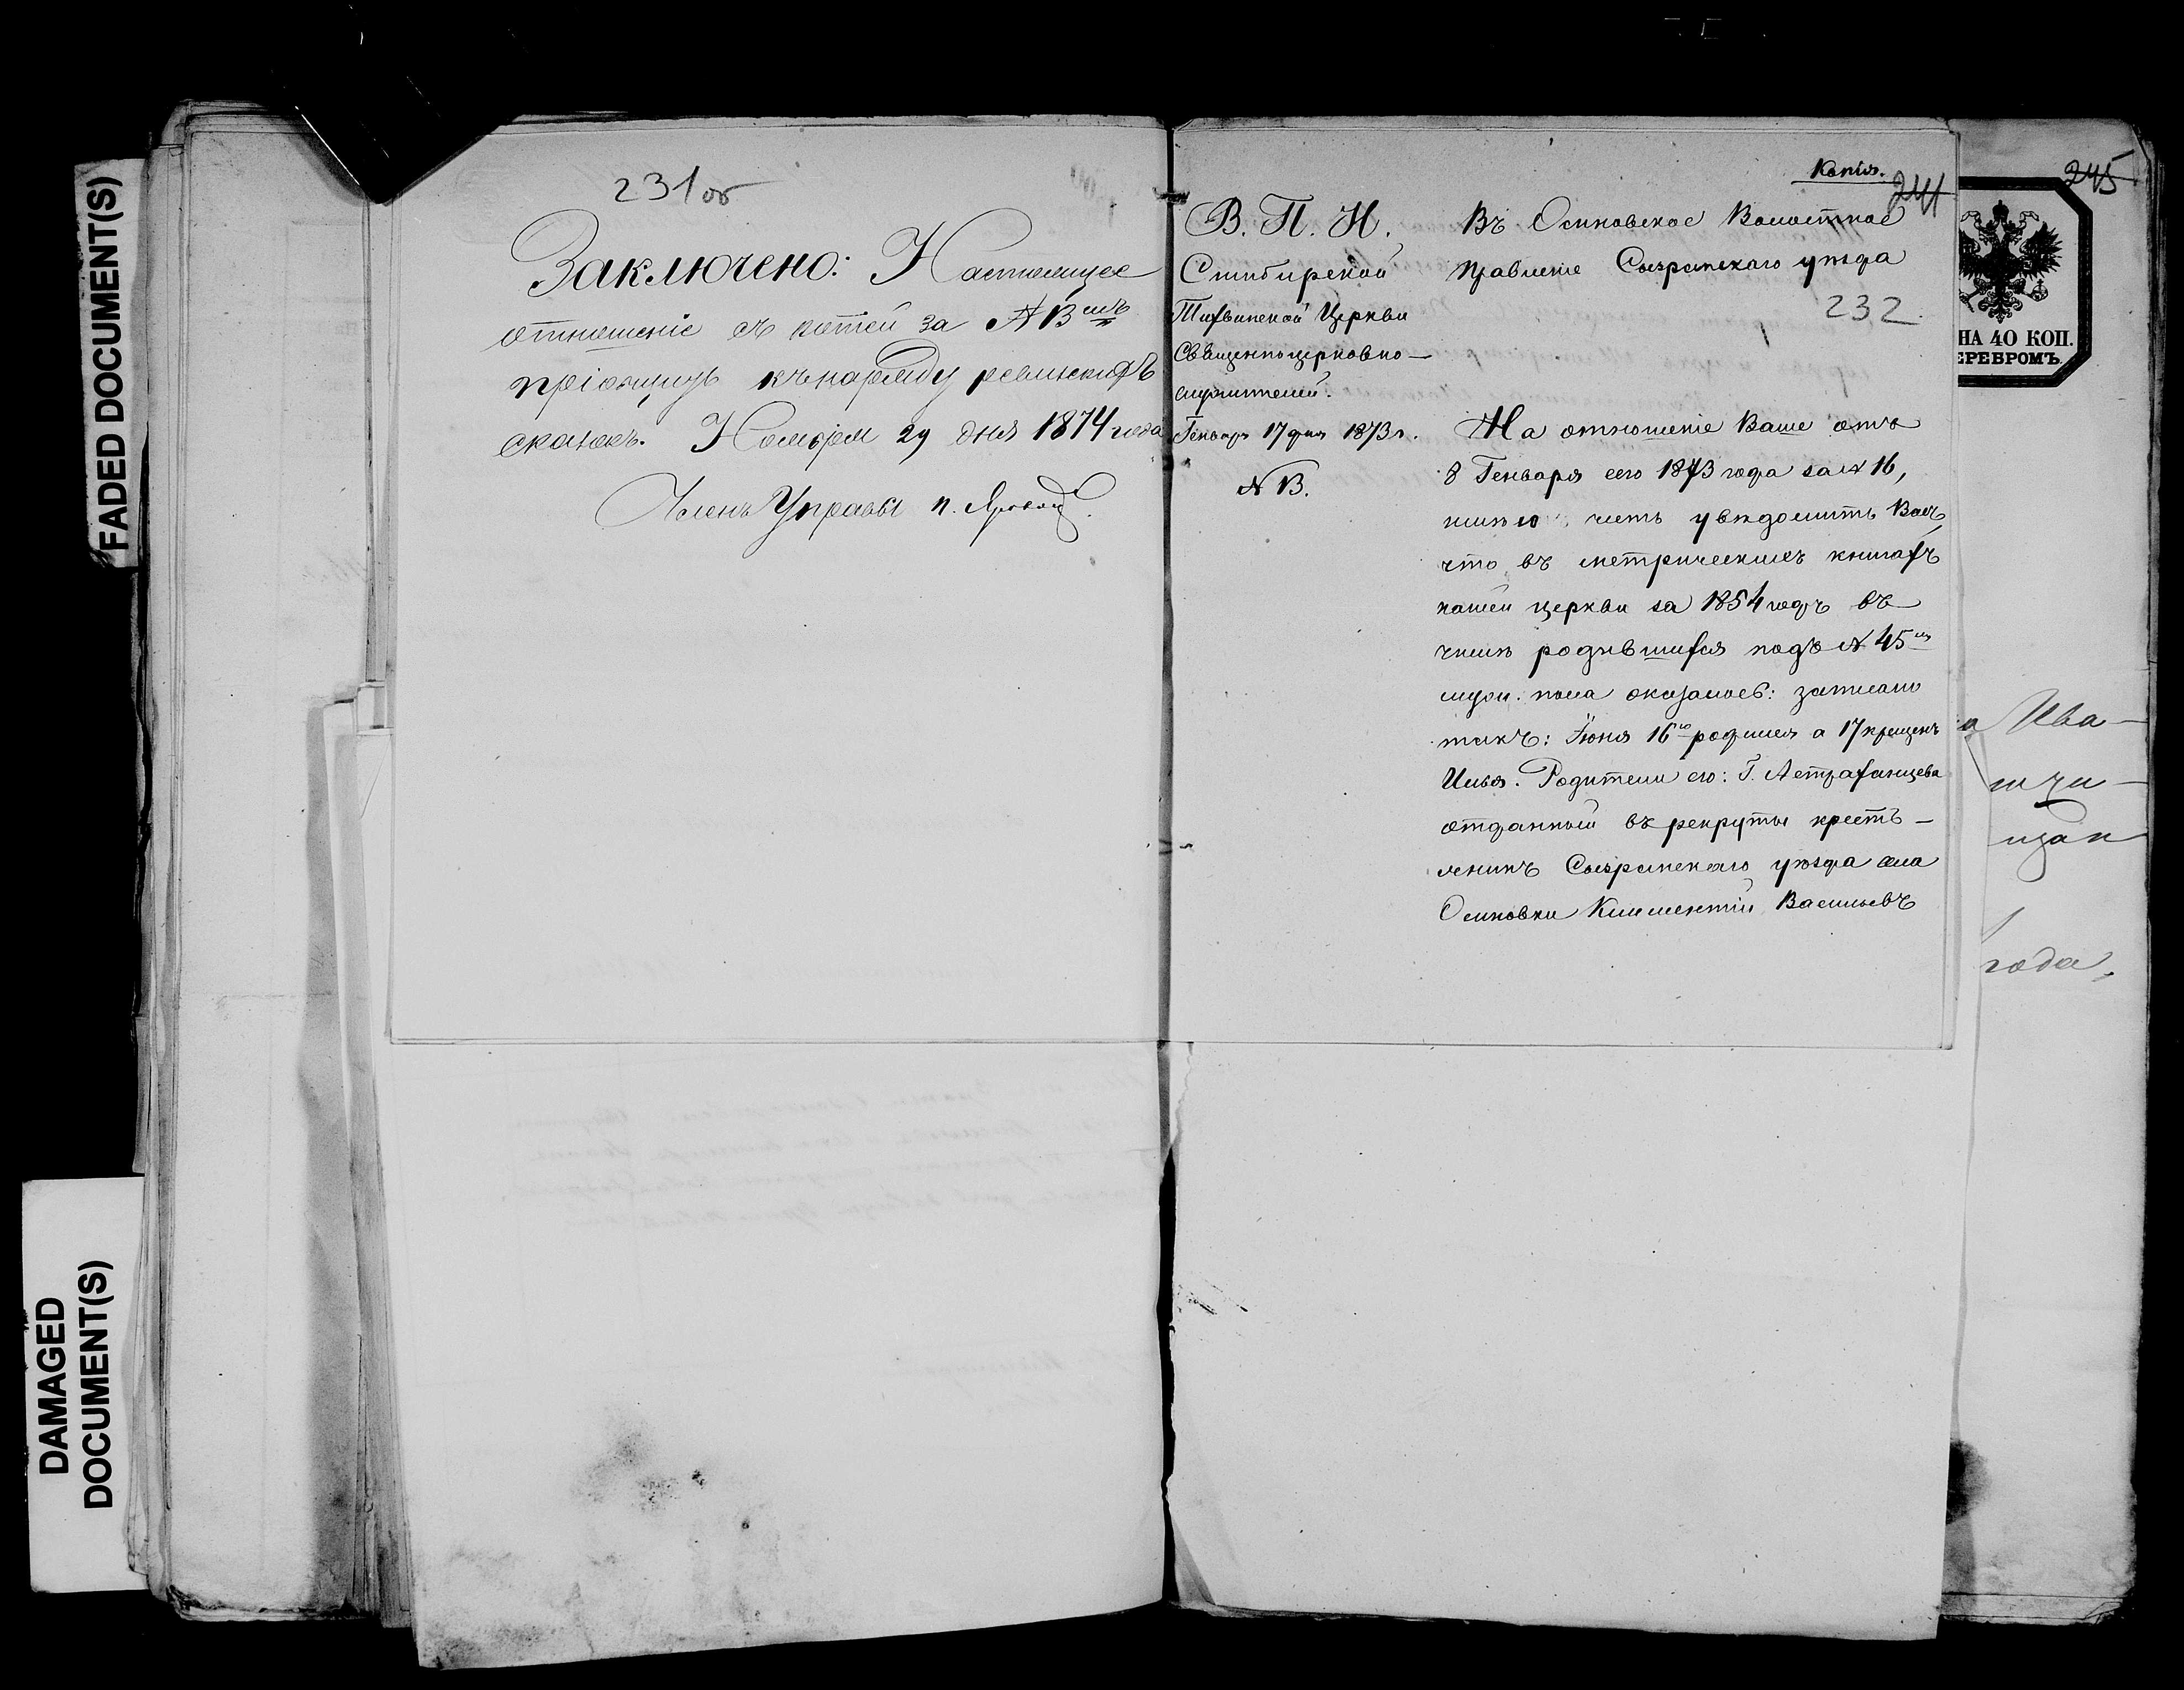 FADED DOCUMENT(S)
DAMAGED
DOCUMENT(S)
231 об
Заключено: Настоящее
отношеніе съ копіей за № 13 мъ
пріобщить къ наряду ревизскихъ
сказокъ. Ноября 29 дня 1874 года
Членъ Управы П.
Копія.
241
В. П. И.
Симбирской
Тихвинской Церкви
Священноцерковно-
служителей.
Генваря 17 дня 1873 г.
№ 13.
Въ Осиновское Волостное
Правленіе Сызранскаго уѣзда
232.
На отношеніе Ваше отъ
8 Генваря сего 1873 года за № 16,
имѣю честь увѣдомить Васъ,
что въ метрическихъ книгахъ
нашей церкви за 1854 годъ въ
числѣ родившихся подъ № 45 мъ
муж. пола оказалось: записано
такъ: Іюня 16 го родился а 17 крещенъ
Илья. Родители его: Г. Астраханцева
отданный въ рекруты кресть-
янинъ Сызранскаго уѣзда села
Осиновки Климентій Васильевъ
245
НА 40 КОП.
ЕРЕБРОМЪ.
а Ива-
года,